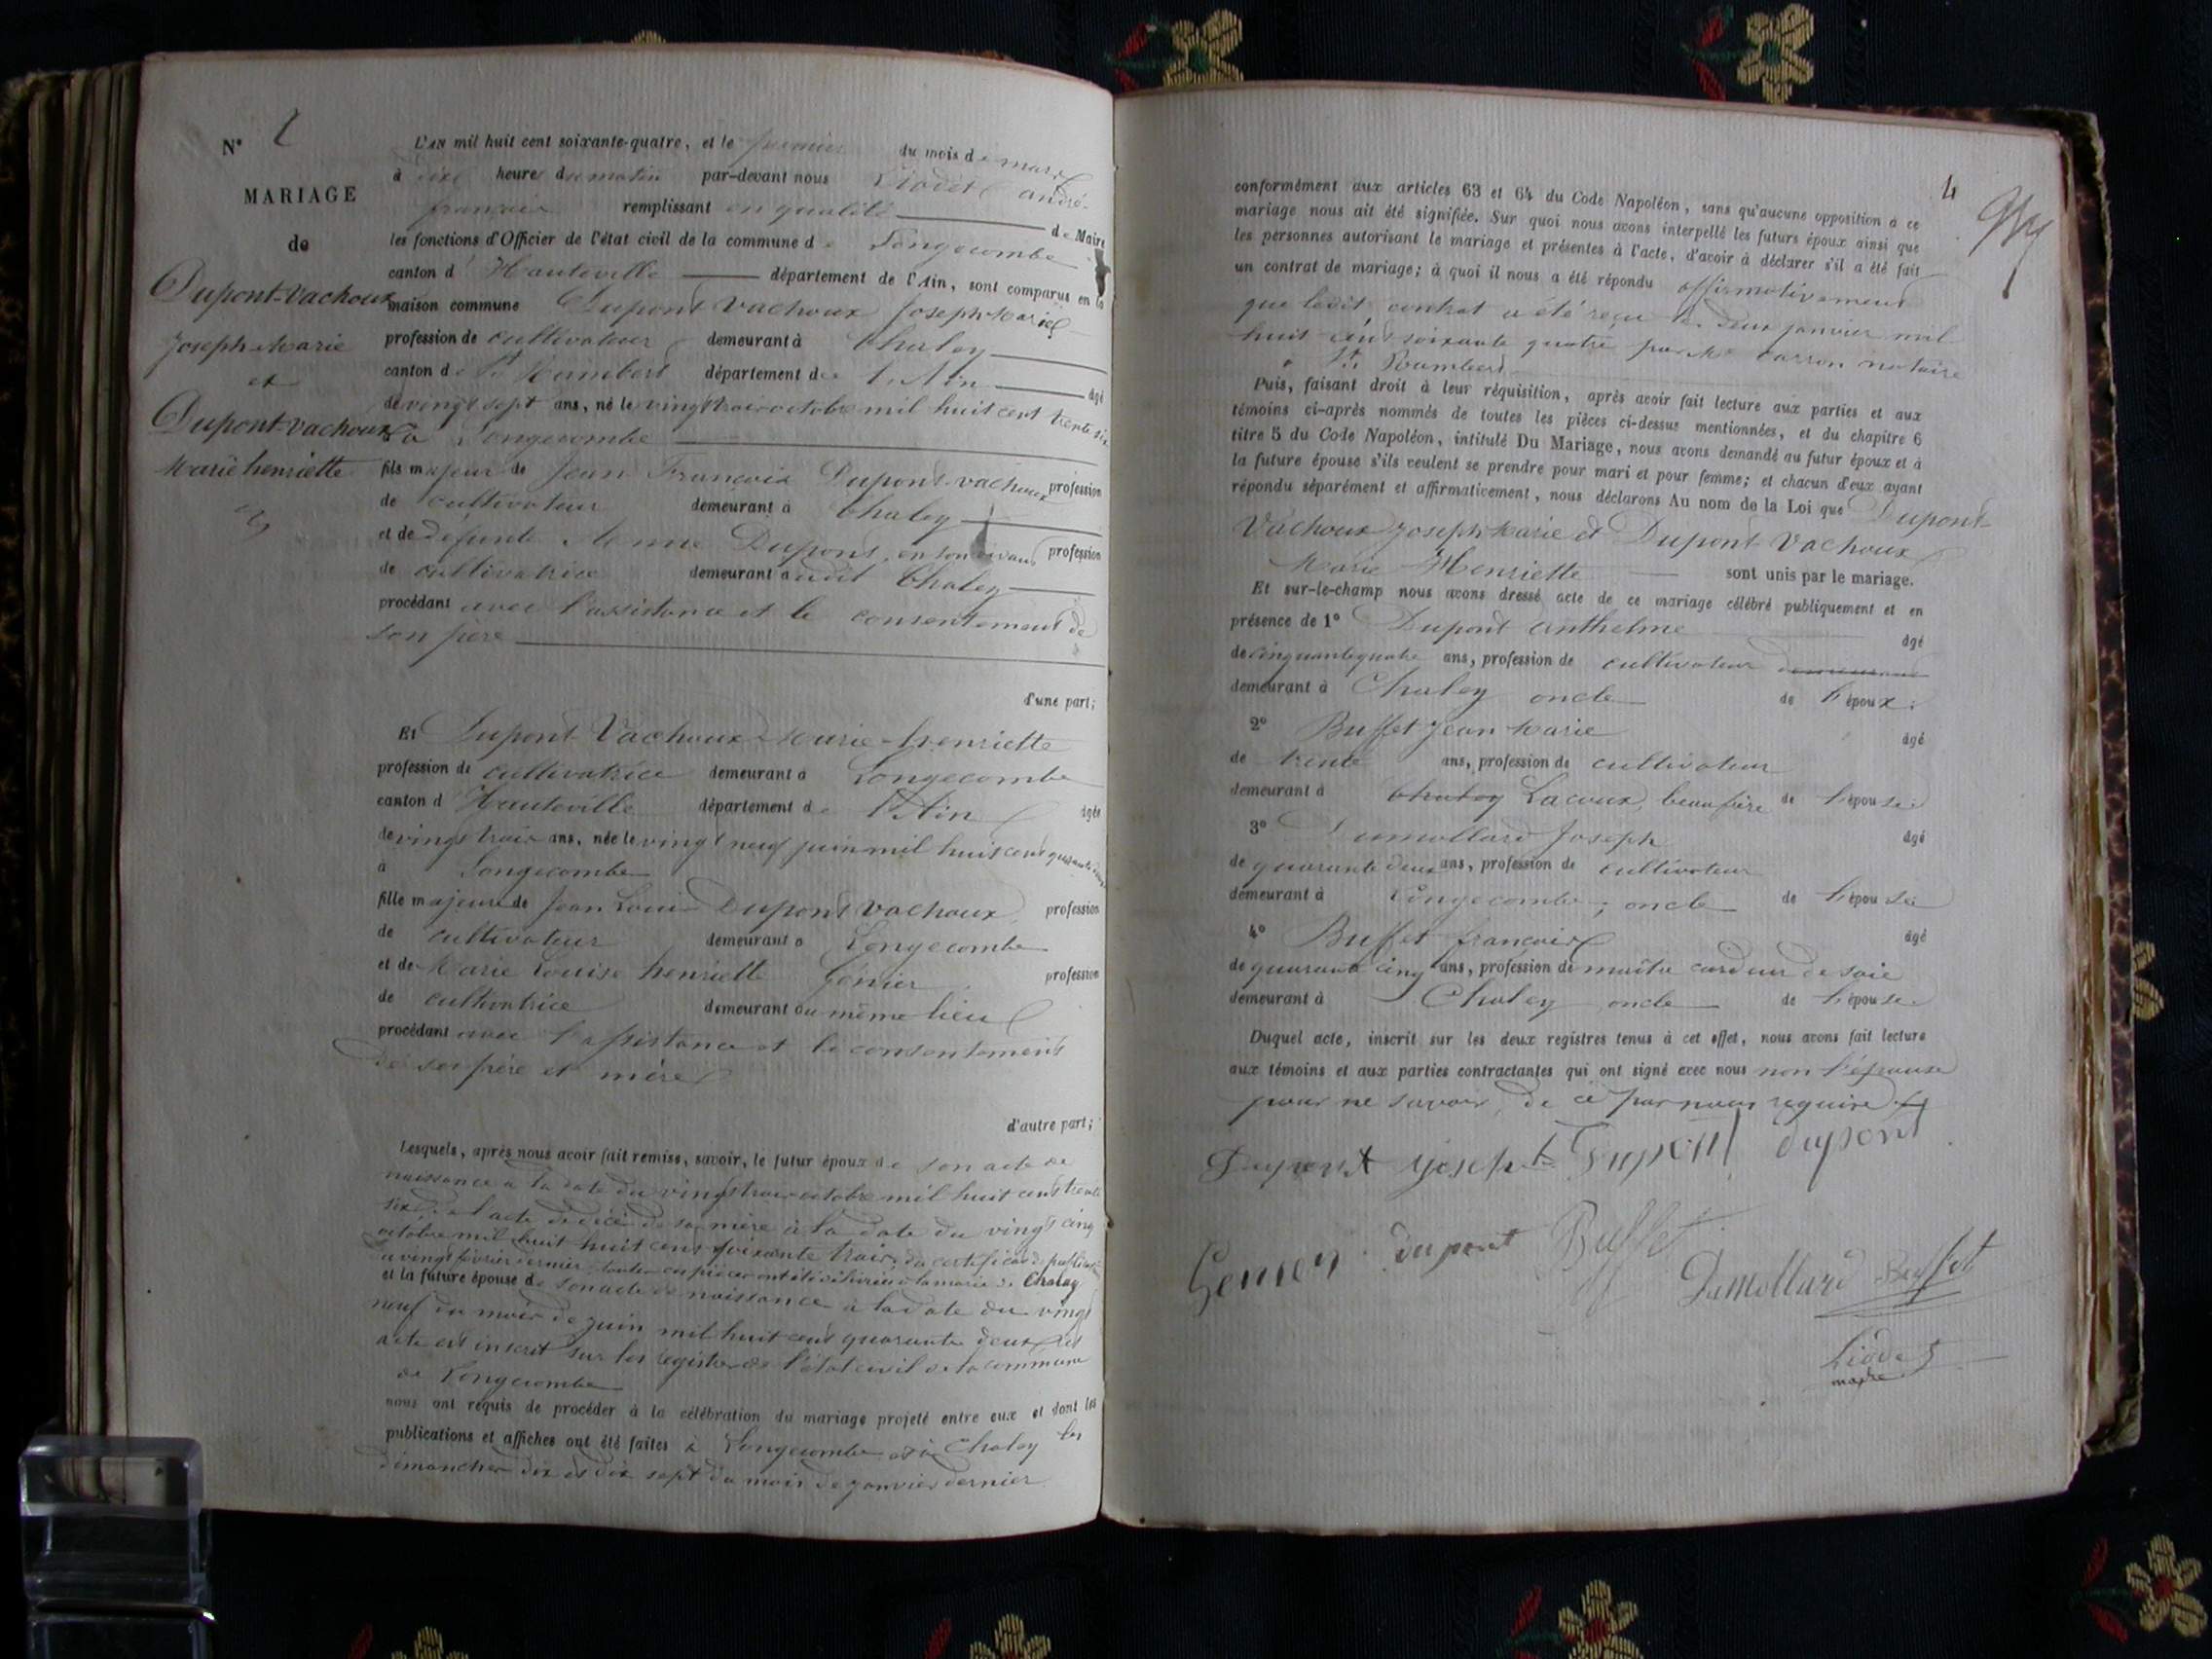 N°
MARIAGE
de
Dupont-Vachoux
Joseph Marie
et
Dupont-Vachoux
Marie henriette
L'AN mil huit cent soixante-quatre, et le premier du mois de mars
à dix heures du matin par-devant nous Liodet André-
françois remplissant en qualité de Maire
les fonctions d'Officier de l'état civil de la commune de Longecombe
canton d'Hauteville département de l'Ain, sont comparus en la
maison commune Dupont Vachoux Joseph Marie
profession de cultivateur demeurant à Chaley
canton de St Rambert département de l'Ain âgé
de vingt sept ans, né le vingt trois octobre mil huit cent trente six
à Longecombe
fils majeur de Jean François Dupont-vachoux profession
de cultivateur demeurant à Chaley
et de défunte Dupont, en son vivant profession
de cultivatrice demeurant audit Chaley
procédant avec l'assistance et le consentement de
son père
d'une part;
Et Dupont Vachoux Marie-henriette
profession de cultivatrice demeurant à Longecombe
canton d'Hauteville département de l'Ain âgée
de vingt trois ans, née le vingt neuf juin mil huit cent quarante deux
à Longecombe
fille majeure de Jean Louis Dupont Vachoux profession
de cultivateur demeurant à Longecombe
et de Marie Louise henriette profession
de cultivatrice demeurant au même lieu
procédant avec l'assistance et le consentement
de ses père et mère
d'autre part;
Lesquels, après nous avoir fait remise, savoir, le futur époux de son acte de
naissance à la date du vingt trois octobre mil huit cent trente
six, de l'acte de décè de sa mère à la date du vingt cinq
octobre mil huit huit cent soixante trois, du certificat de publication
vingt février dernier, toutes ces pièces ont été délivrées à la mairie de Chaley
et la future épouse de son acte de naissance à la date du vingt
neuf du mois de juin mil huit cent quarante deux
acte est inscrit sur les registres de l'état civil de la commune
de Longecombe
nous ont requis de procéder à la célébration du mariage projeté entre eux et dont les
publications et affiches ont été faites à Longecombe et à Chaley les
dimanches dix et dix sept du mois de janvier dernier
4
conformément aux articles 63 et 64 du Code Napoléon, sans qu'aucune opposition à ce
mariage nous ait été signifiée. Sur quoi nous avons interpellé les futurs époux ainsi que
les personnes autorisant le mariage et présentes à l'acte, d'avoir à déclarer s'il a été fait
un contrat de mariage; à quoi il nous a été répondu affirmativement
que ledit contrat a été reçu le deux janvier mil
huit cent soixante quatre par Me Carron notaire
à St Rambert
Puis, faisant droit à leur réquisition, après avoir fait lecture aux parties et aux
témoins ci-après nommés de toutes les pièces ci-dessus mentionnées, et du chapitre 6
titre 5 du Code Napoléon, intitulé Du Mariage, nous avons demandé au futur époux et à
la future épouse s'ils veulent se prendre pour mari et pour femme; et chacun d'eux ayant
répondu séparément et affirmativement, nous déclarons Au nom de la Loi que Dupont-
Vachoux Joseph Marie et Dupont Vachoux
Marie Henriette sont unis par le mariage.
Et sur-le-champ nous avons dressé acte de ce mariage célébré publiquement et en
présence de 1° Dupont Anthelme âgé
de cinquante quatre ans, profession de cultivateur demeurant
demeurant à Chaley oncle de l'époux;
2° Buffet Jean Marie âgé
de trente ans, profession de cultivateur
demeurant à Chaley Lacoux, beaufrère de l'épouse
3° Dumollard Joseph âgé
de quarante deux ans, profession de cultivateur
demeurant à Longecombe; oncle de l'épouse
4° Buffet françois âgé
de quarante cinq ans, profession de maître cardeur de soie
demeurant à Chaley oncle de l'épouse
Duquel acte, inscrit sur les deux registres tenus à cet effet, nous avons fait lecture
aux témoins et aux parties contractantes qui ont signé avec nous non l'épouse
pour ne savoir, de ce par nous requise
Dupont joseph Dupont dupont
dupont Buffet Dumollard Buffet
Liodet
maire